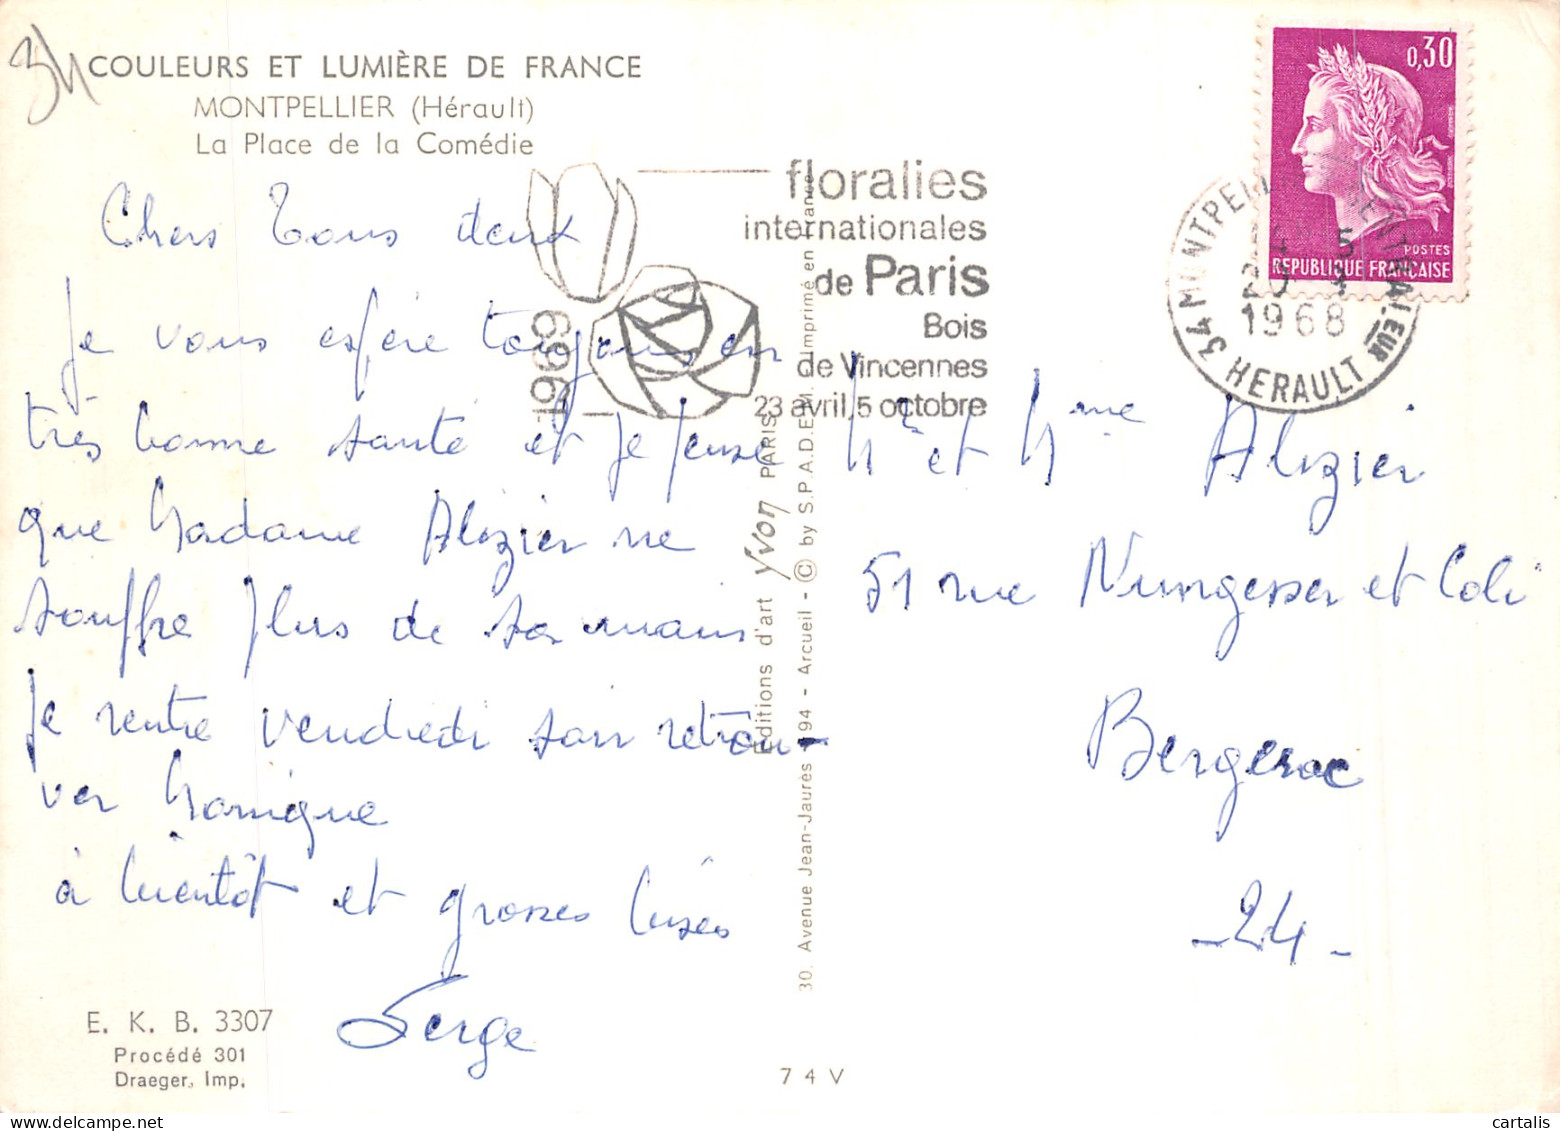 34
COULEURS ET LUMIÈRE DE FRANCE
MONTPELLIER (Hérault)
La Place de la Comédie
Chers Tous deux
Je vous espère toujours en
très bonne santé et je pense
que Madame Alozier ne
souffre plus de ses mains
Je rentre vendredi soir retrou-
ver Monique
à bientôt et grosses bises
Serge
E. K. B. 3307
Procédé 301
Draeger, Imp.
floralies
internationales
de Paris
Bois
de Vincennes
23 avril, 5 octobre
1969
Editions d'art Yvon PARIS
30. Avenue Jean-Jaurès - 94 - Arcueil - © by S.P.A.D.E.M. Imprimé en France
7 4 V
0,30
POSTES
REPUBLIQUE FRANÇAISE
34 MONTPELLIER
1968
HERAULT
Mr et Mme Alozier
51 rue Nungesser et Coli
Bergerac
- 24 -
cartalis